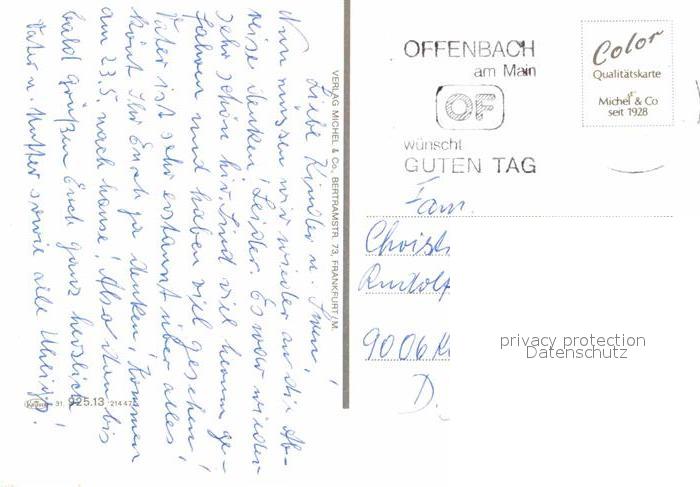 Liebe Kinder u. Sven!
Nun müssen wir wieder an die Ab-
reise denken! Leider. Es war wieder
sehr schön hir. Sind viel herum ge-
fahren und haben viel gesehen!
Vater ist sehr erstaunt über alles,
könt Ihr Euch ja denken! Kommen
am 23.5. nach hause! Also dann bis
bald grüßen Euch ganz herzlich!
Vater u. Mutter sowie alle
VERLAG MICHEL & Co., BERTRAMSTR. 73, FRANKFURT/M.
31. 925.13 214 47
OFFENBACH
am Main
OF
wünscht
GUTEN TAG
Color
Qualitätskarte
Michel & Co
seit 1928
Fam.
Christ
Rudolf
9006 K
D.
privacy protection
Datenschutz